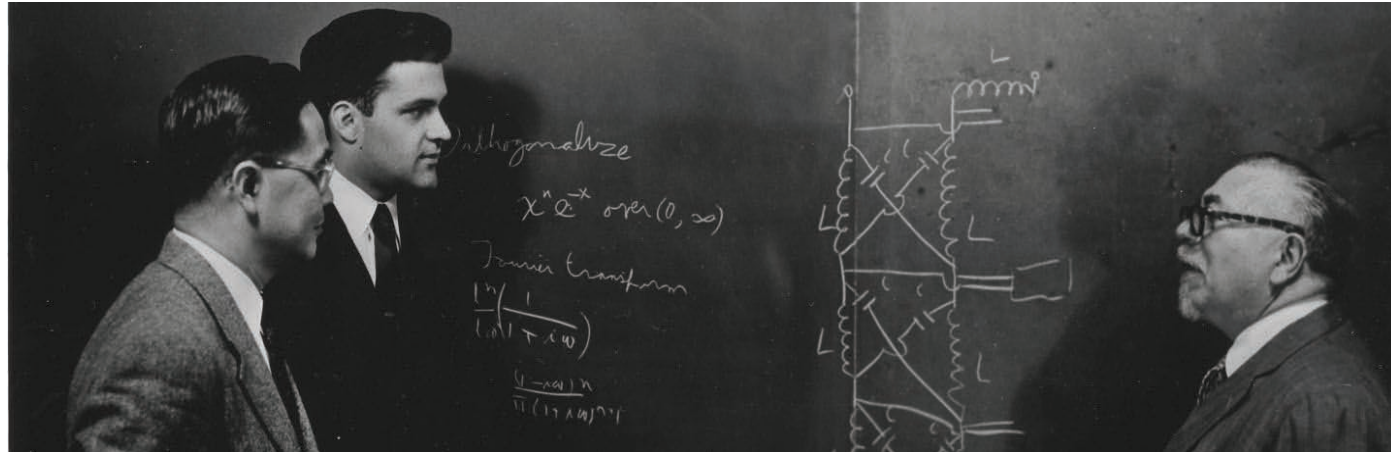 Orthogonalize
xⁿ e⁻ˣ over (0, ∞)
Fourier transform
1 / (1 + iω)
(1-iω)ⁿ / π(1+iω)ⁿ⁺¹
L
L
L
L
L